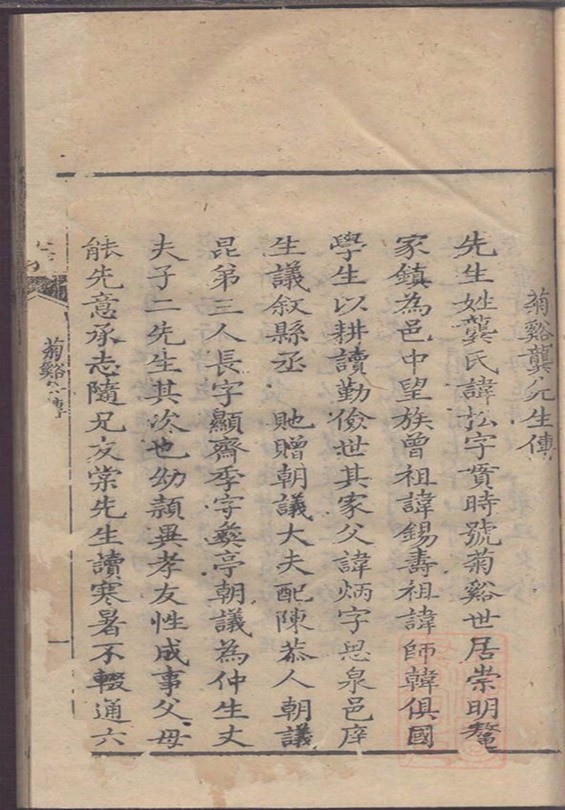 菊谿龔先生傳
先生姓龔氏諱松字賓時號菊谿世居崇明鼇
家鎮為邑中望族曾祖諱錫壽祖諱師韓俱國
學生以耕讀勤儉世其家父諱炳字思泉邑庠
生議叙縣丞 貤贈朝議大夫配陳恭人朝議
昆弟三人長字顯齋季字彝亭朝議為仲生丈
夫子二先生其次也幼穎異孝友性成事父母
能先意承志隨兄友棠先生讀寒暑不輟通六
菊谿公傳
一